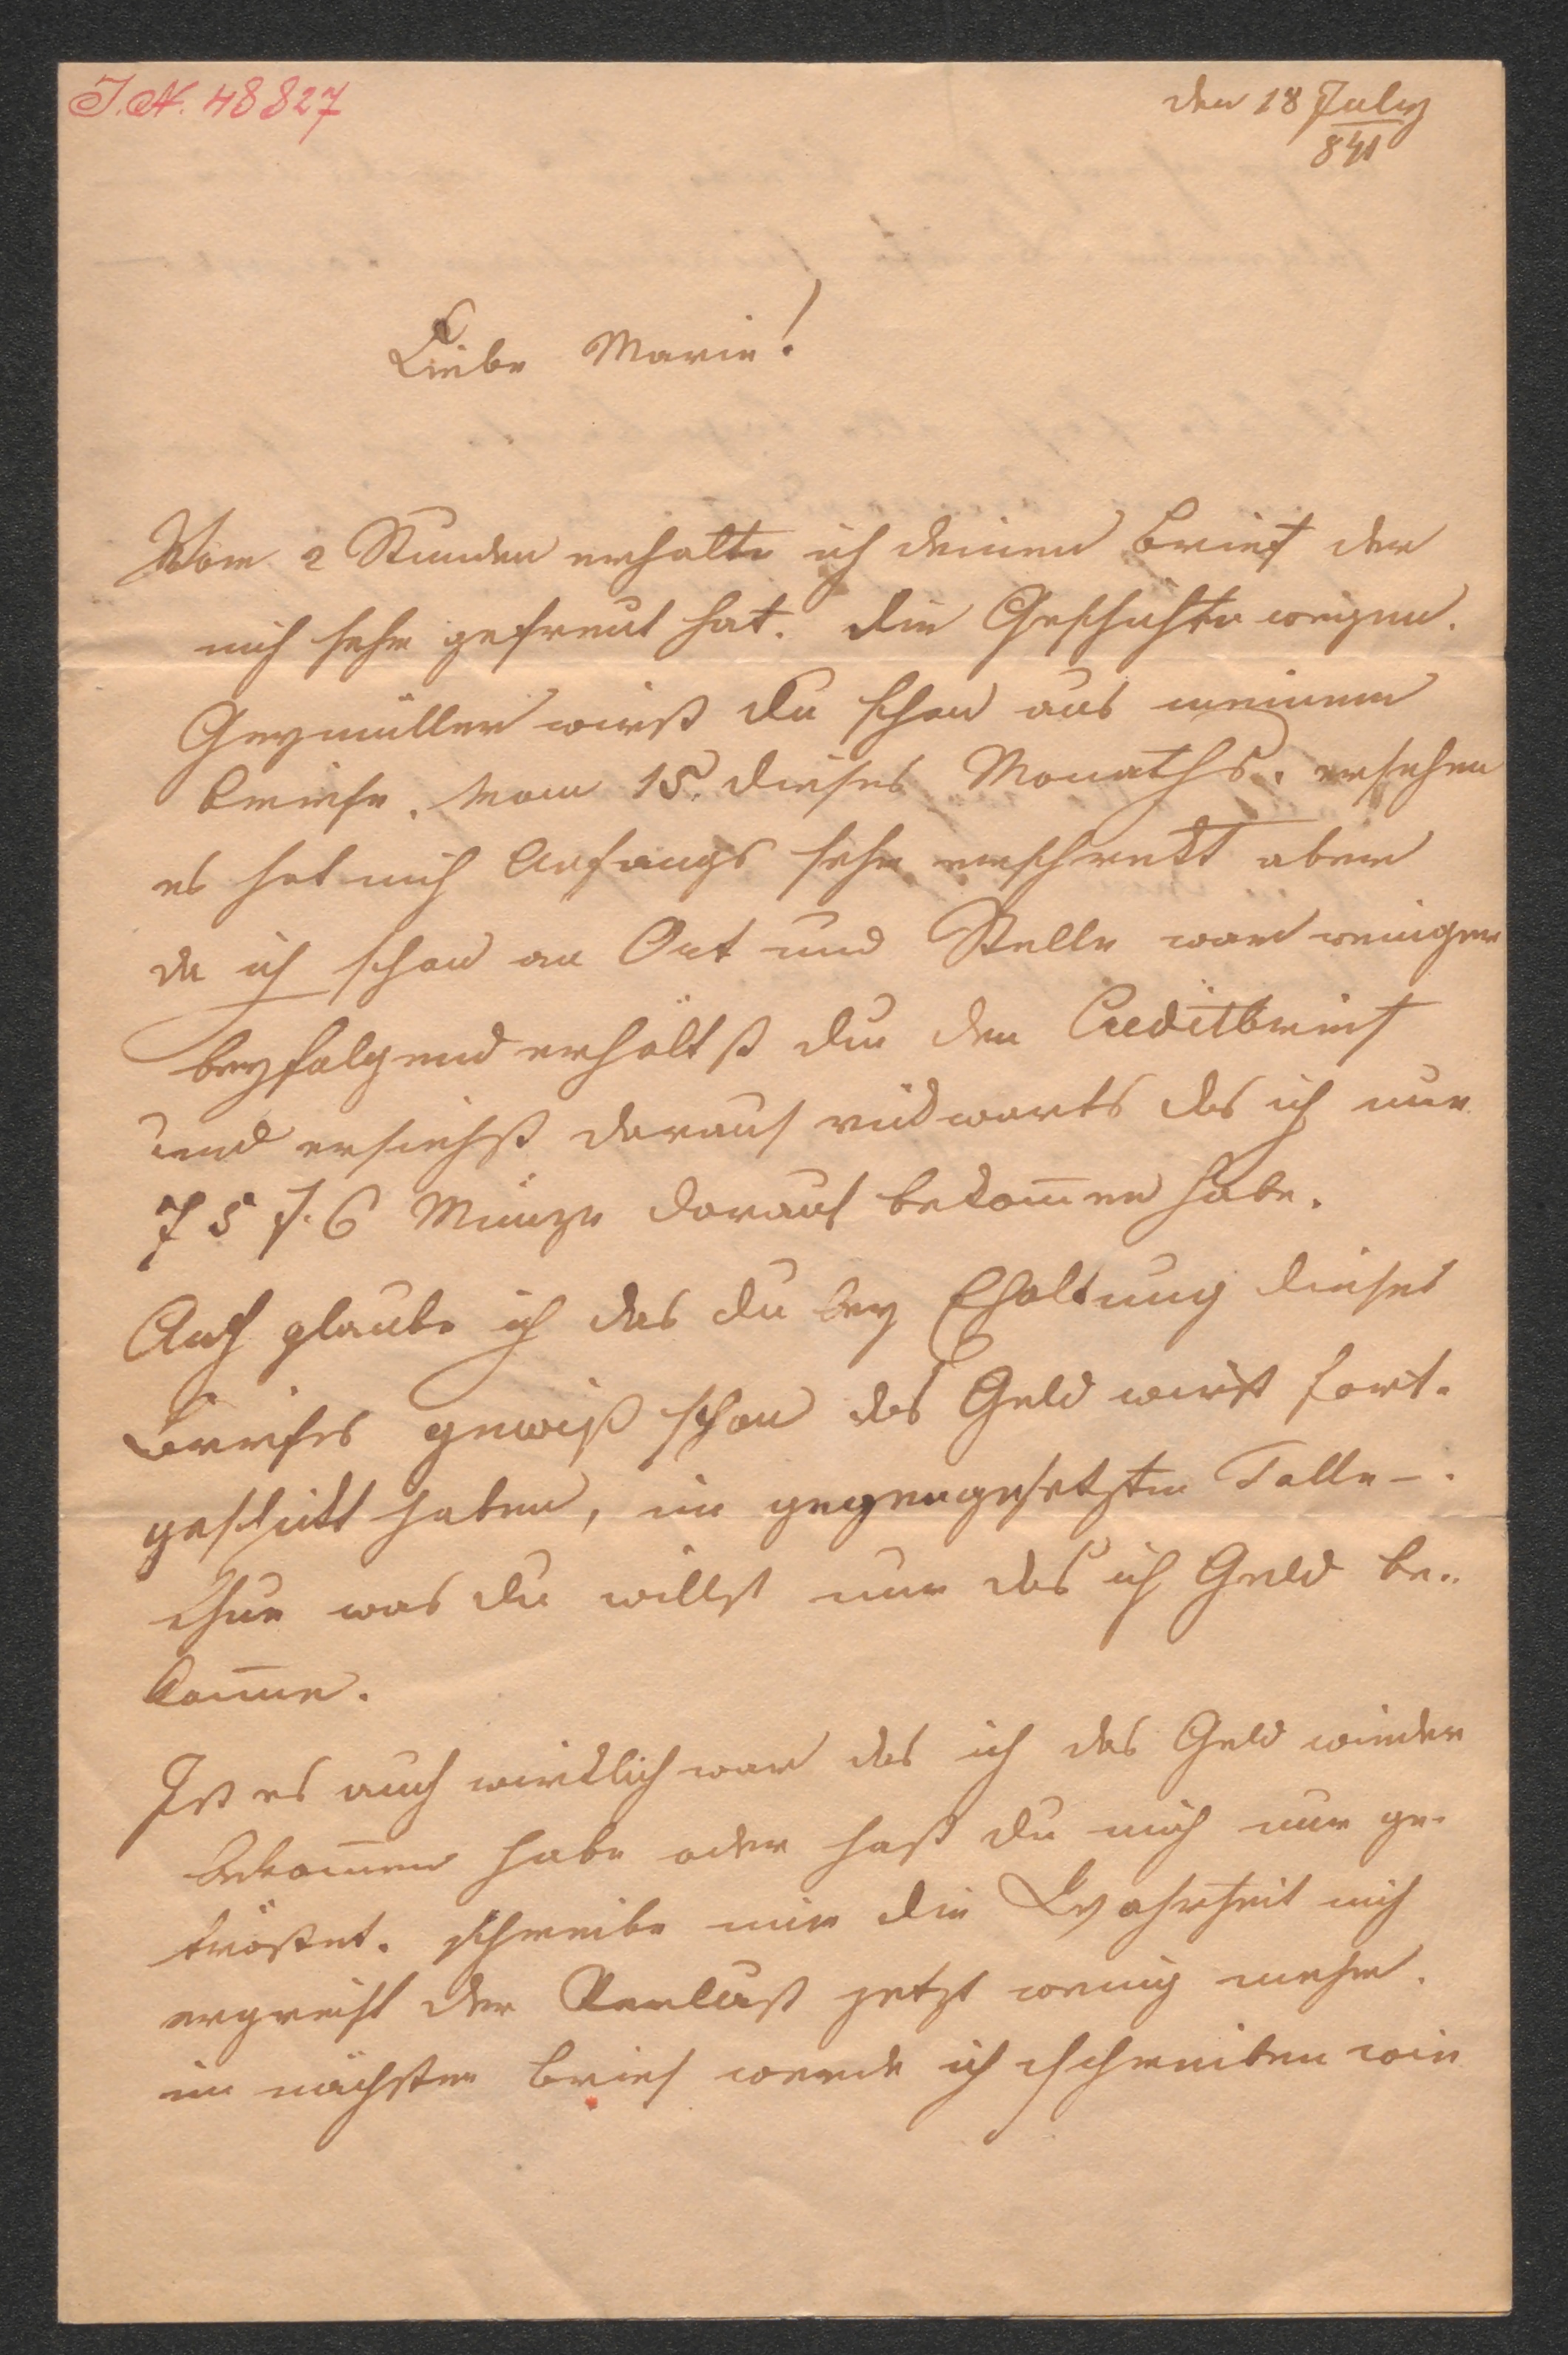 I.N. 48827
den 18 July
841
Liebe Marie!
Vor 2 Stunden erhalte ich deinen Brief der
mich sehr gefreut hat. die Geschichte wegen.
Geymüller wirst du schon aus meinem
Briefe. vom 15. dieses Monaths. ersehen
es hat mich Anfangs sehr erschrekt aber
da ich schon an Ort und Stelle war weniger
beyfolgend erhältst du den Creditbrief
und ersiehst darauf rückwarts das ich nur
75 f. 6 Münze darauf bekom̅en habe.
Auch glaube ich das du bey Ehaltung dieses
Briefes gewiß schon das Geld wirst fort-
geschikt haben, im gegengesetzten Falle-.
thue was du willst nur das ich Geld be-
kom̅me.
Ist es auch wirklich war das ich das Geld wieder
bekom̅en habe oder hast du mich nur ge-
tröstet. schreibe mir die Wahrheit mich
ergreift der Verlust jetzt wenig mehr.
im nächsten Brief werde ich schreiben wie